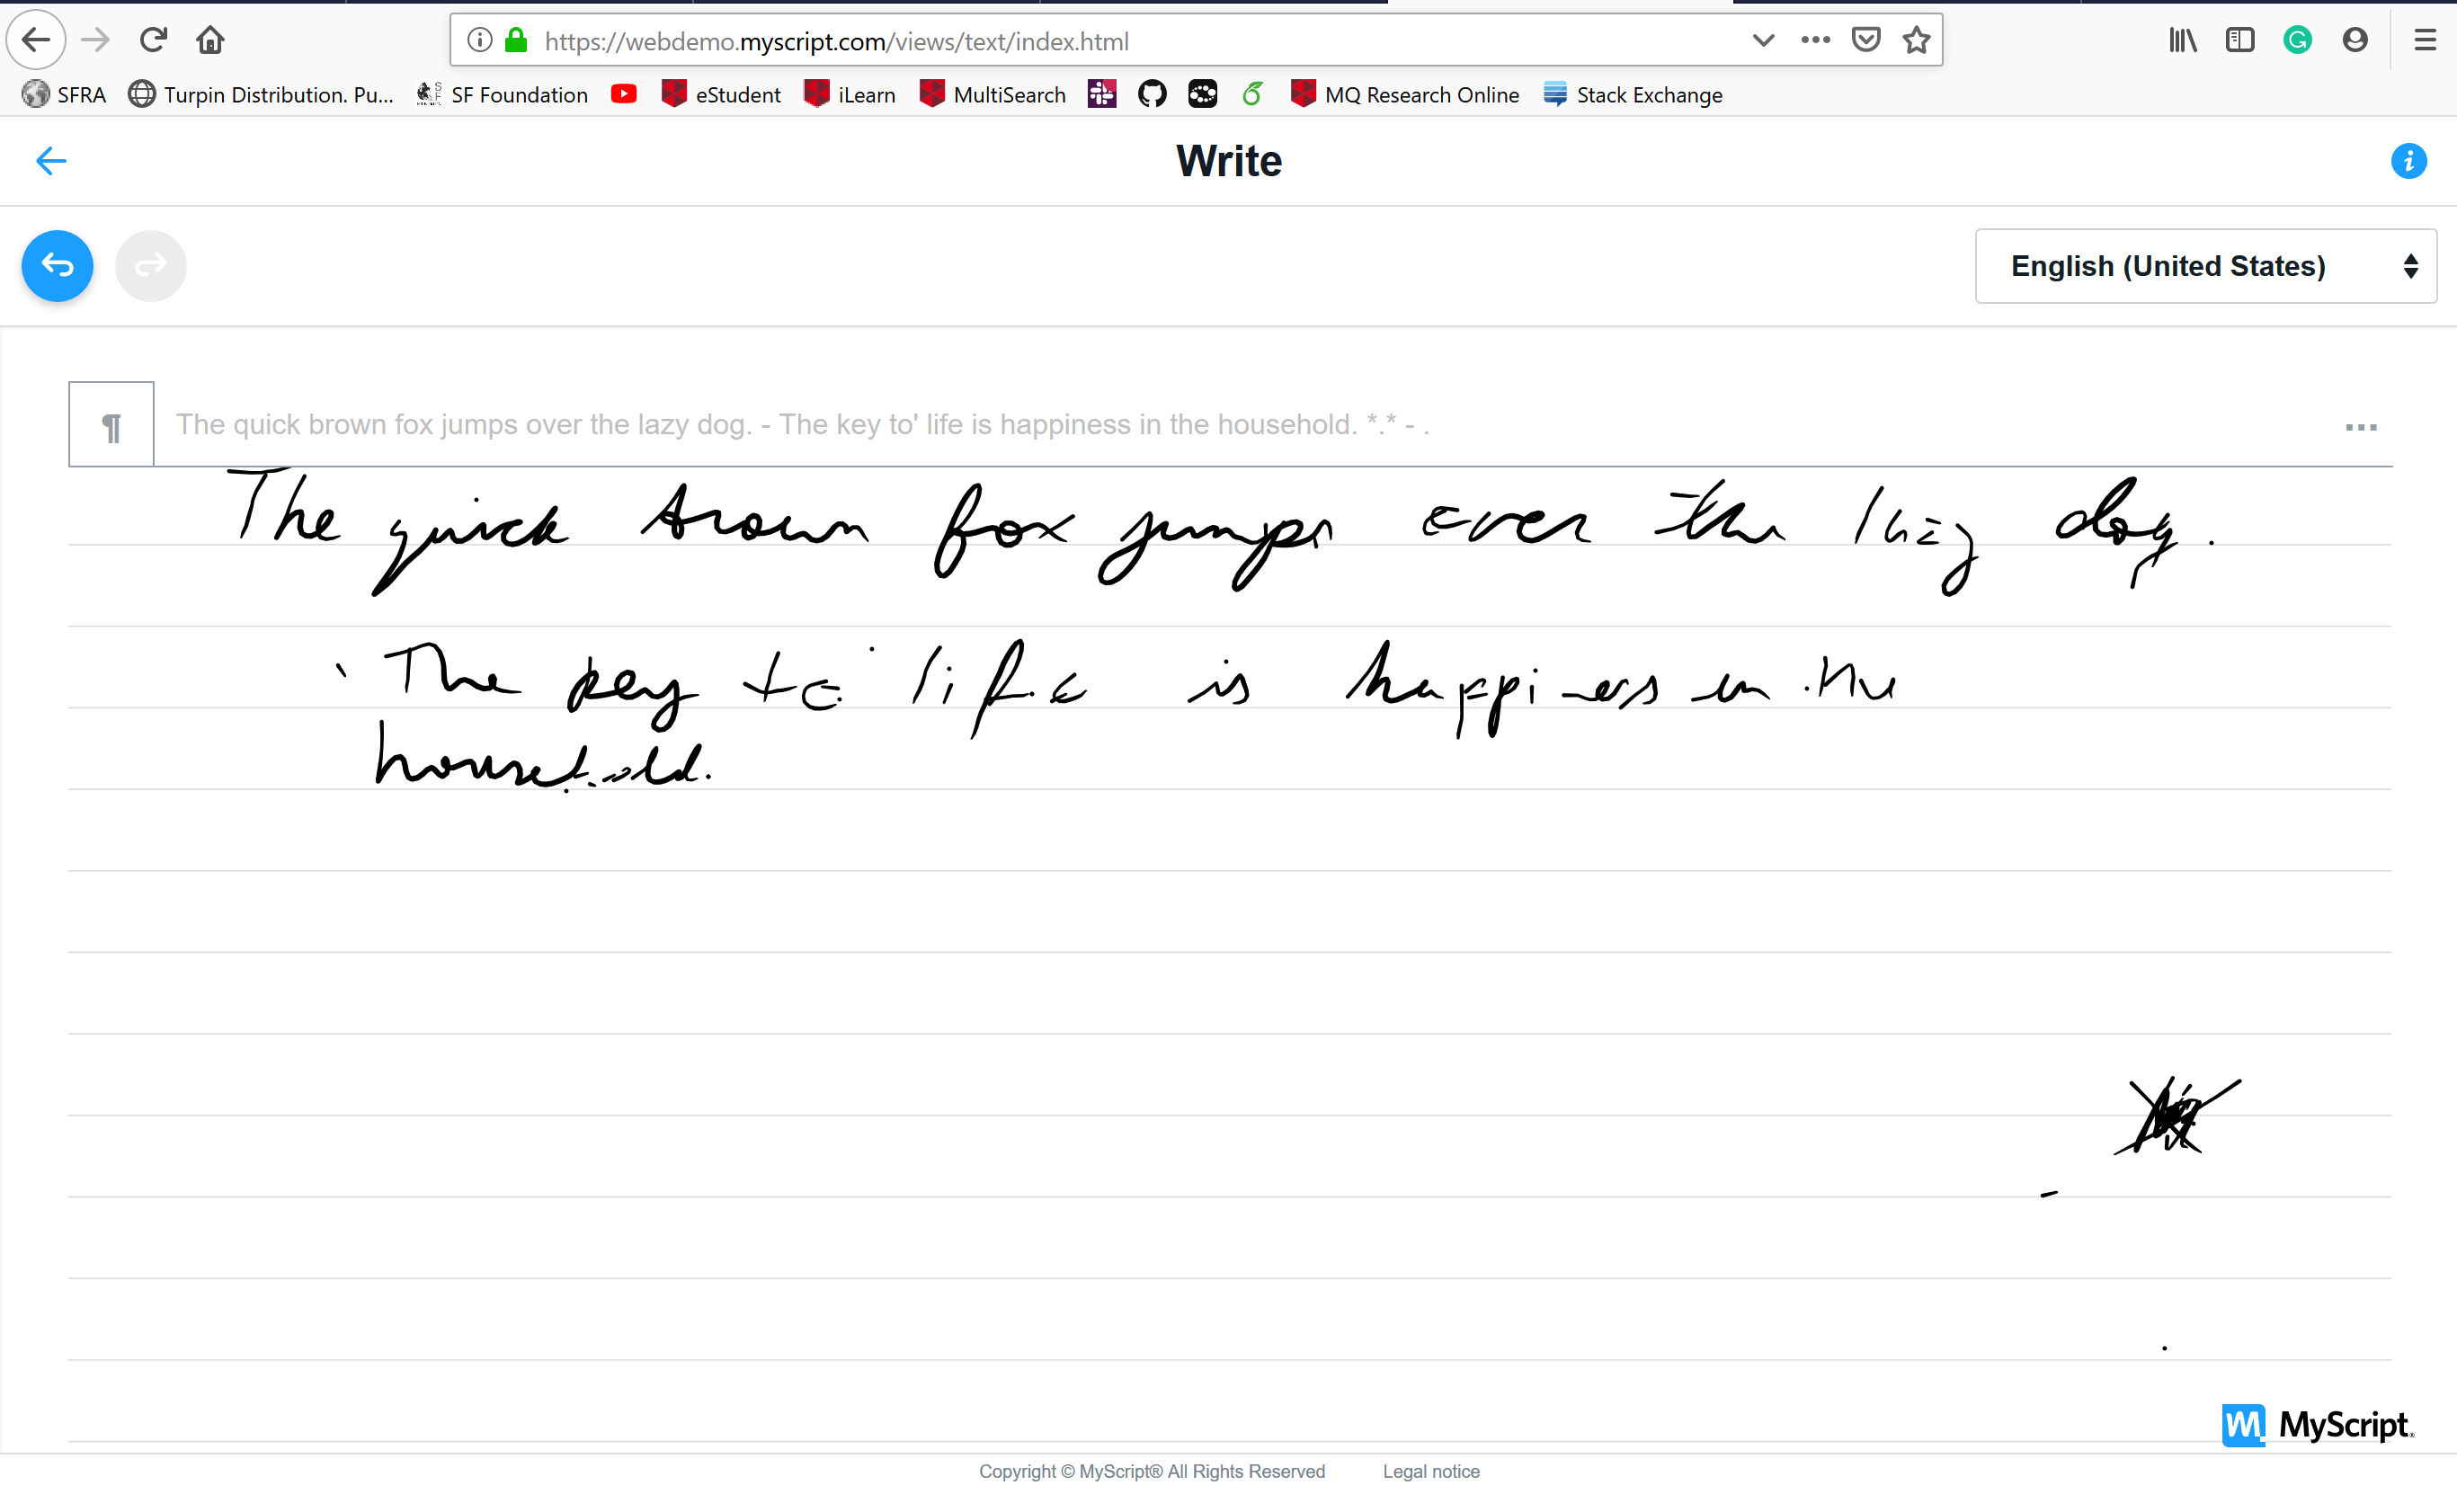 https://webdemo.myscript.com/views/text/index.html
SFRA Turpin Distribution. Pu... SF Foundation eStudent iLearn MultiSearch MQ Research Online Stack Exchange
Write
English (United States)
¶ The quick brown fox jumps over the lazy dog. - The key to' life is happiness in the household. *.* - . ...
The quick brown fox jumps over the lazy dog.
The key to life is happiness in the
household.
MyScript
Copyright © MyScript® All Rights Reserved Legal notice